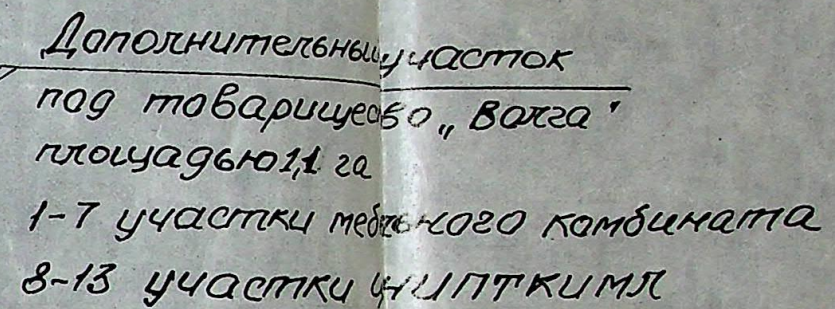 Дополнительный участок
под товарищество „Волга"
площадью 1,1 га
1-7 участки мебельного комбината
8-13 участки